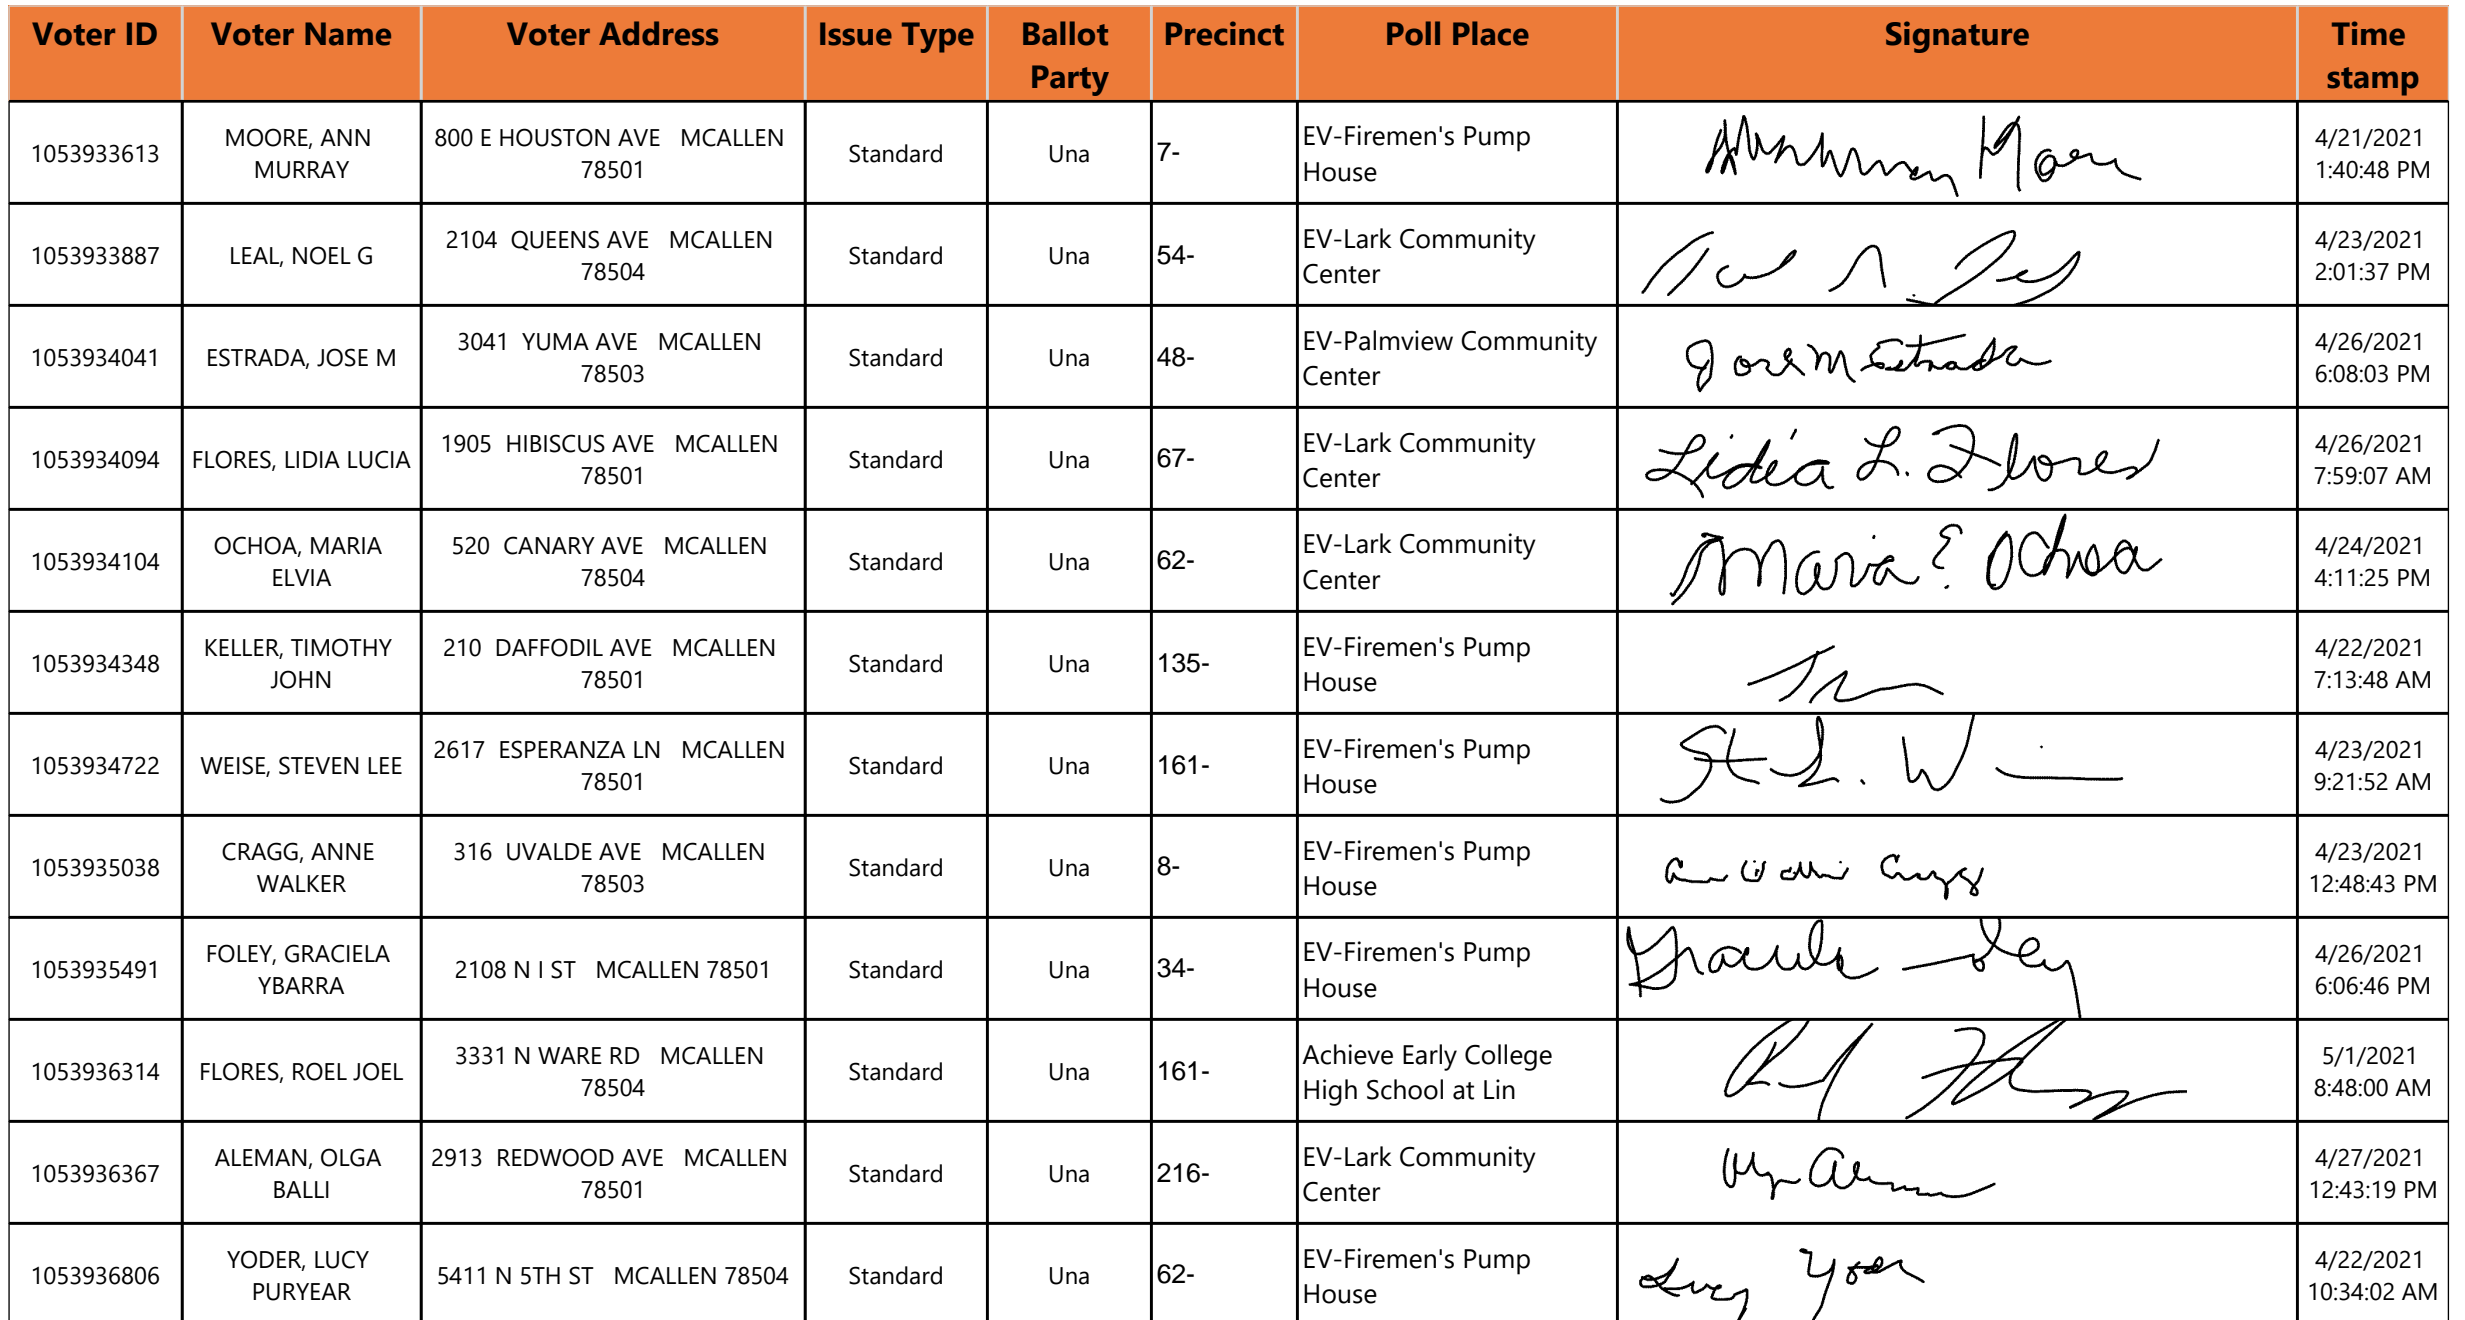 Voter ID Voter Name Voter Address Issue Type Ballot Party Precinct Poll Place Signature Time stamp
1053933613 MOORE, ANN MURRAY 800 E HOUSTON AVE MCALLEN 78501 Standard Una 7- EV-Firemen's Pump House 4/21/2021 1:40:48 PM
1053933887 LEAL, NOEL G 2104 QUEENS AVE MCALLEN 78504 Standard Una 54- EV-Lark Community Center 4/23/2021 2:01:37 PM
1053934041 ESTRADA, JOSE M 3041 YUMA AVE MCALLEN 78503 Standard Una 48- EV-Palmview Community Center Jose M Estrada 4/26/2021 6:08:03 PM
1053934094 FLORES, LIDIA LUCIA 1905 HIBISCUS AVE MCALLEN 78501 Standard Una 67- EV-Lark Community Center Lidia L. Flores 4/26/2021 7:59:07 AM
1053934104 OCHOA, MARIA ELVIA 520 CANARY AVE MCALLEN 78504 Standard Una 62- EV-Lark Community Center Maria E. Ochoa 4/24/2021 4:11:25 PM
1053934348 KELLER, TIMOTHY JOHN 210 DAFFODIL AVE MCALLEN 78501 Standard Una 135- EV-Firemen's Pump House 4/22/2021 7:13:48 AM
1053934722 WEISE, STEVEN LEE 2617 ESPERANZA LN MCALLEN 78501 Standard Una 161- EV-Firemen's Pump House 4/23/2021 9:21:52 AM
1053935038 CRAGG, ANNE WALKER 316 UVALDE AVE MCALLEN 78503 Standard Una 8- EV-Firemen's Pump House 4/23/2021 12:48:43 PM
1053935491 FOLEY, GRACIELA YBARRA 2108 N I ST MCALLEN 78501 Standard Una 34- EV-Firemen's Pump House 4/26/2021 6:06:46 PM
1053936314 FLORES, ROEL JOEL 3331 N WARE RD MCALLEN 78504 Standard Una 161- Achieve Early College High School at Lin 5/1/2021 8:48:00 AM
1053936367 ALEMAN, OLGA BALLI 2913 REDWOOD AVE MCALLEN 78501 Standard Una 216- EV-Lark Community Center 4/27/2021 12:43:19 PM
1053936806 YODER, LUCY PURYEAR 5411 N 5TH ST MCALLEN 78504 Standard Una 62- EV-Firemen's Pump House Lucy 4/22/2021 10:34:02 AM